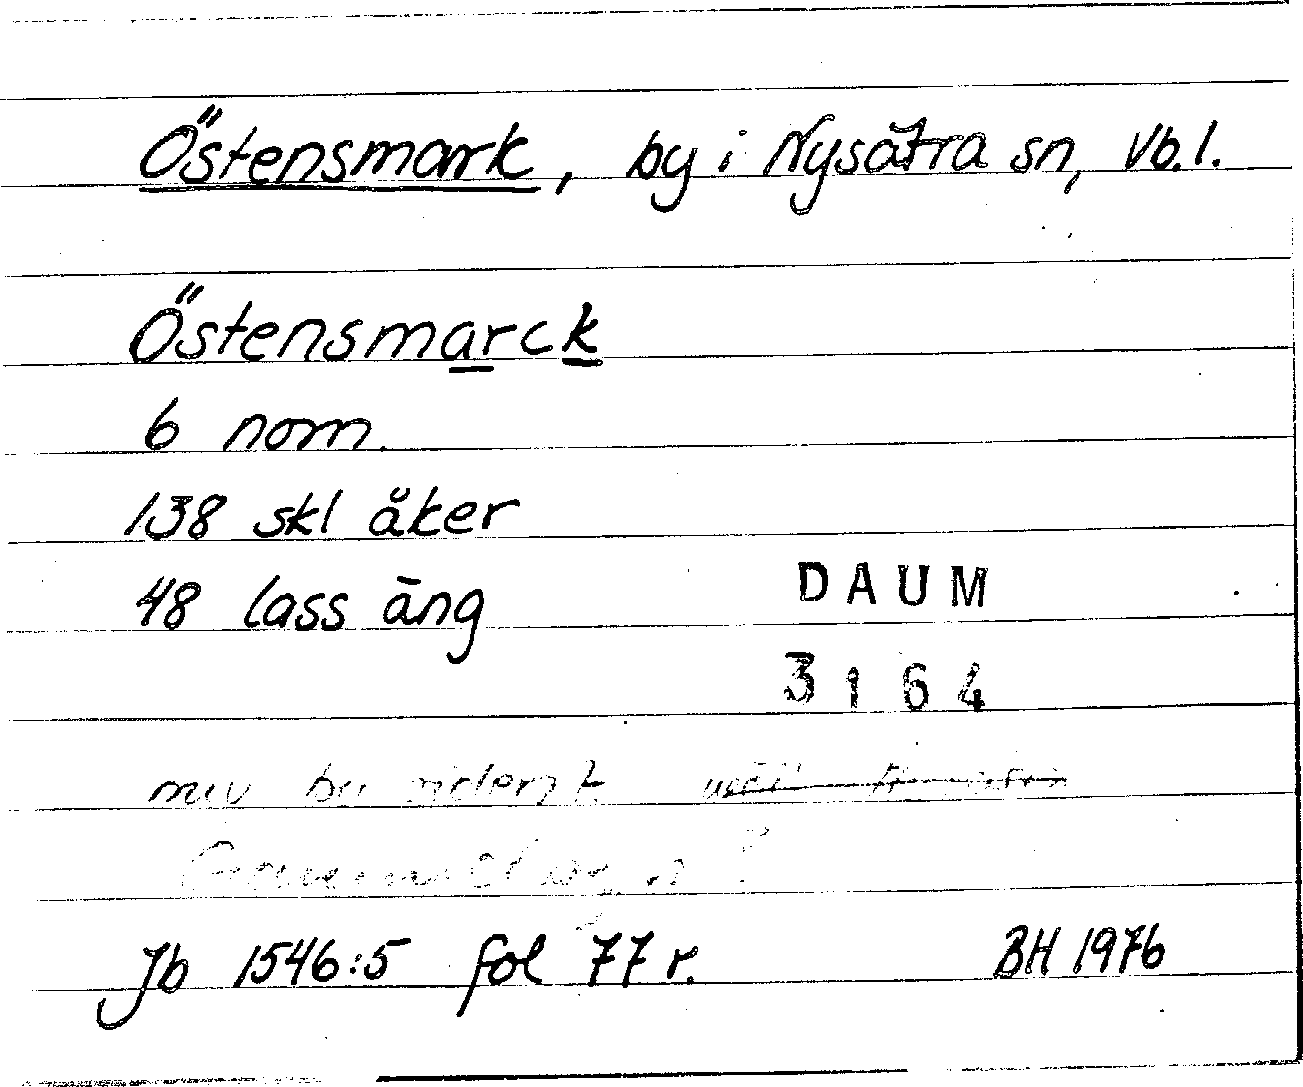 Östensmark, by i Nysätra sn, Vb.l.
Östensmarck
6 nom.
138 skl åker
48 lass äng
DAUM
3164
Jb 1546:5 fol 77 r. BH 1976